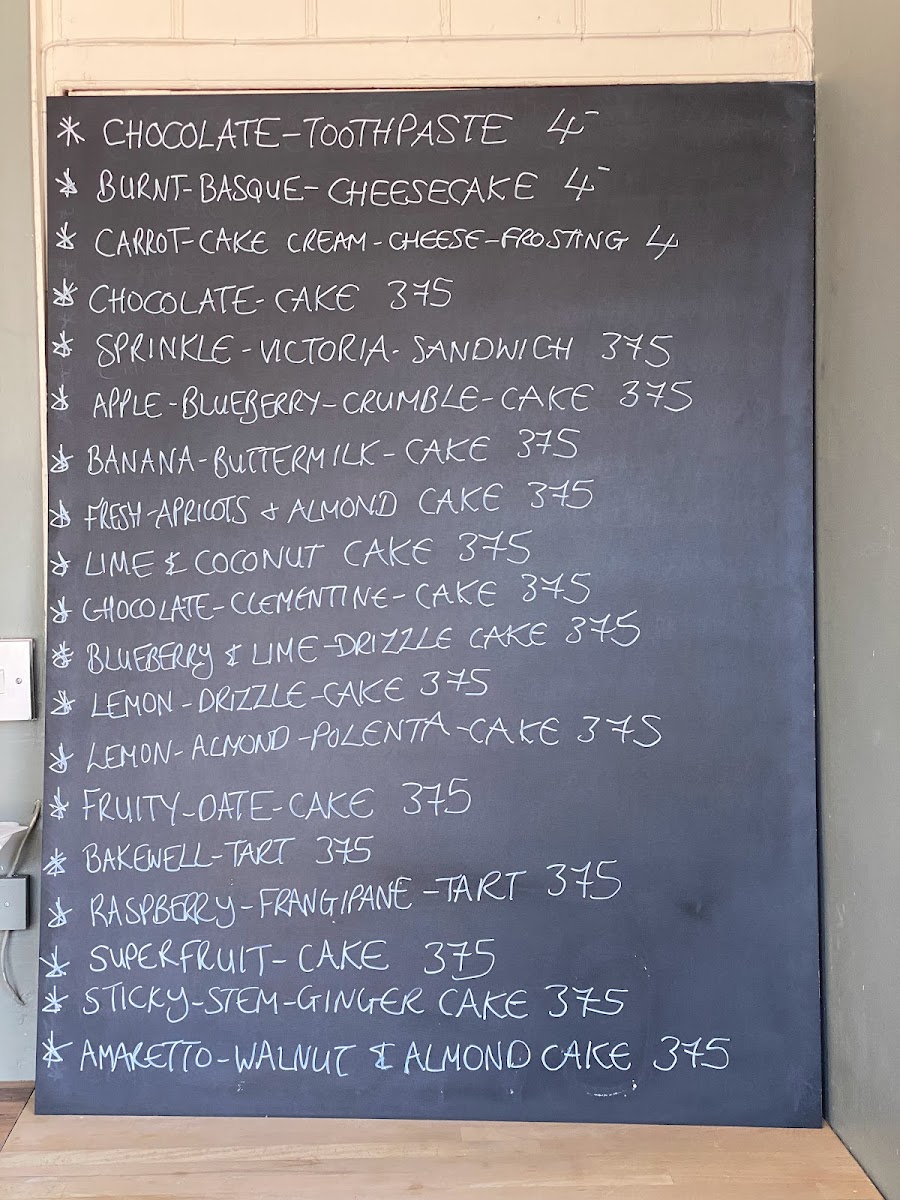 * CHOCOLATE-TOOTHPASTE 4-
* BURNT-BASQUE-CHEESECAKE 4-
* CARROT-CAKE CREAM-CHEESE-FROSTING 4
* CHOCOLATE-CAKE 375
* SPRINKLE-VICTORIA-SANDWICH 375
* APPLE-BLUEBERRY-CRUMBLE-CAKE 375
* BANANA-BUTTERMILK-CAKE 375
* FRESH-APRICOTS & ALMOND CAKE 375
* LIME & COCONUT CAKE 375
* CHOCOLATE-CLEMENTINE-CAKE 375
* BLUEBERRY & LIME-DRIZZLE CAKE 375
* LEMON-DRIZZLE-CAKE 375
* LEMON-ALMOND-POLENTA-CAKE 375
* FRUITY-DATE-CAKE 375
* BAKEWELL-TART 375
* RASPBERRY-FRANGIPANE-TART 375
* SUPERFRUIT-CAKE 375
* STICKY-STEM-GINGER CAKE 375
* AMARETTO-WALNUT & ALMOND CAKE 375